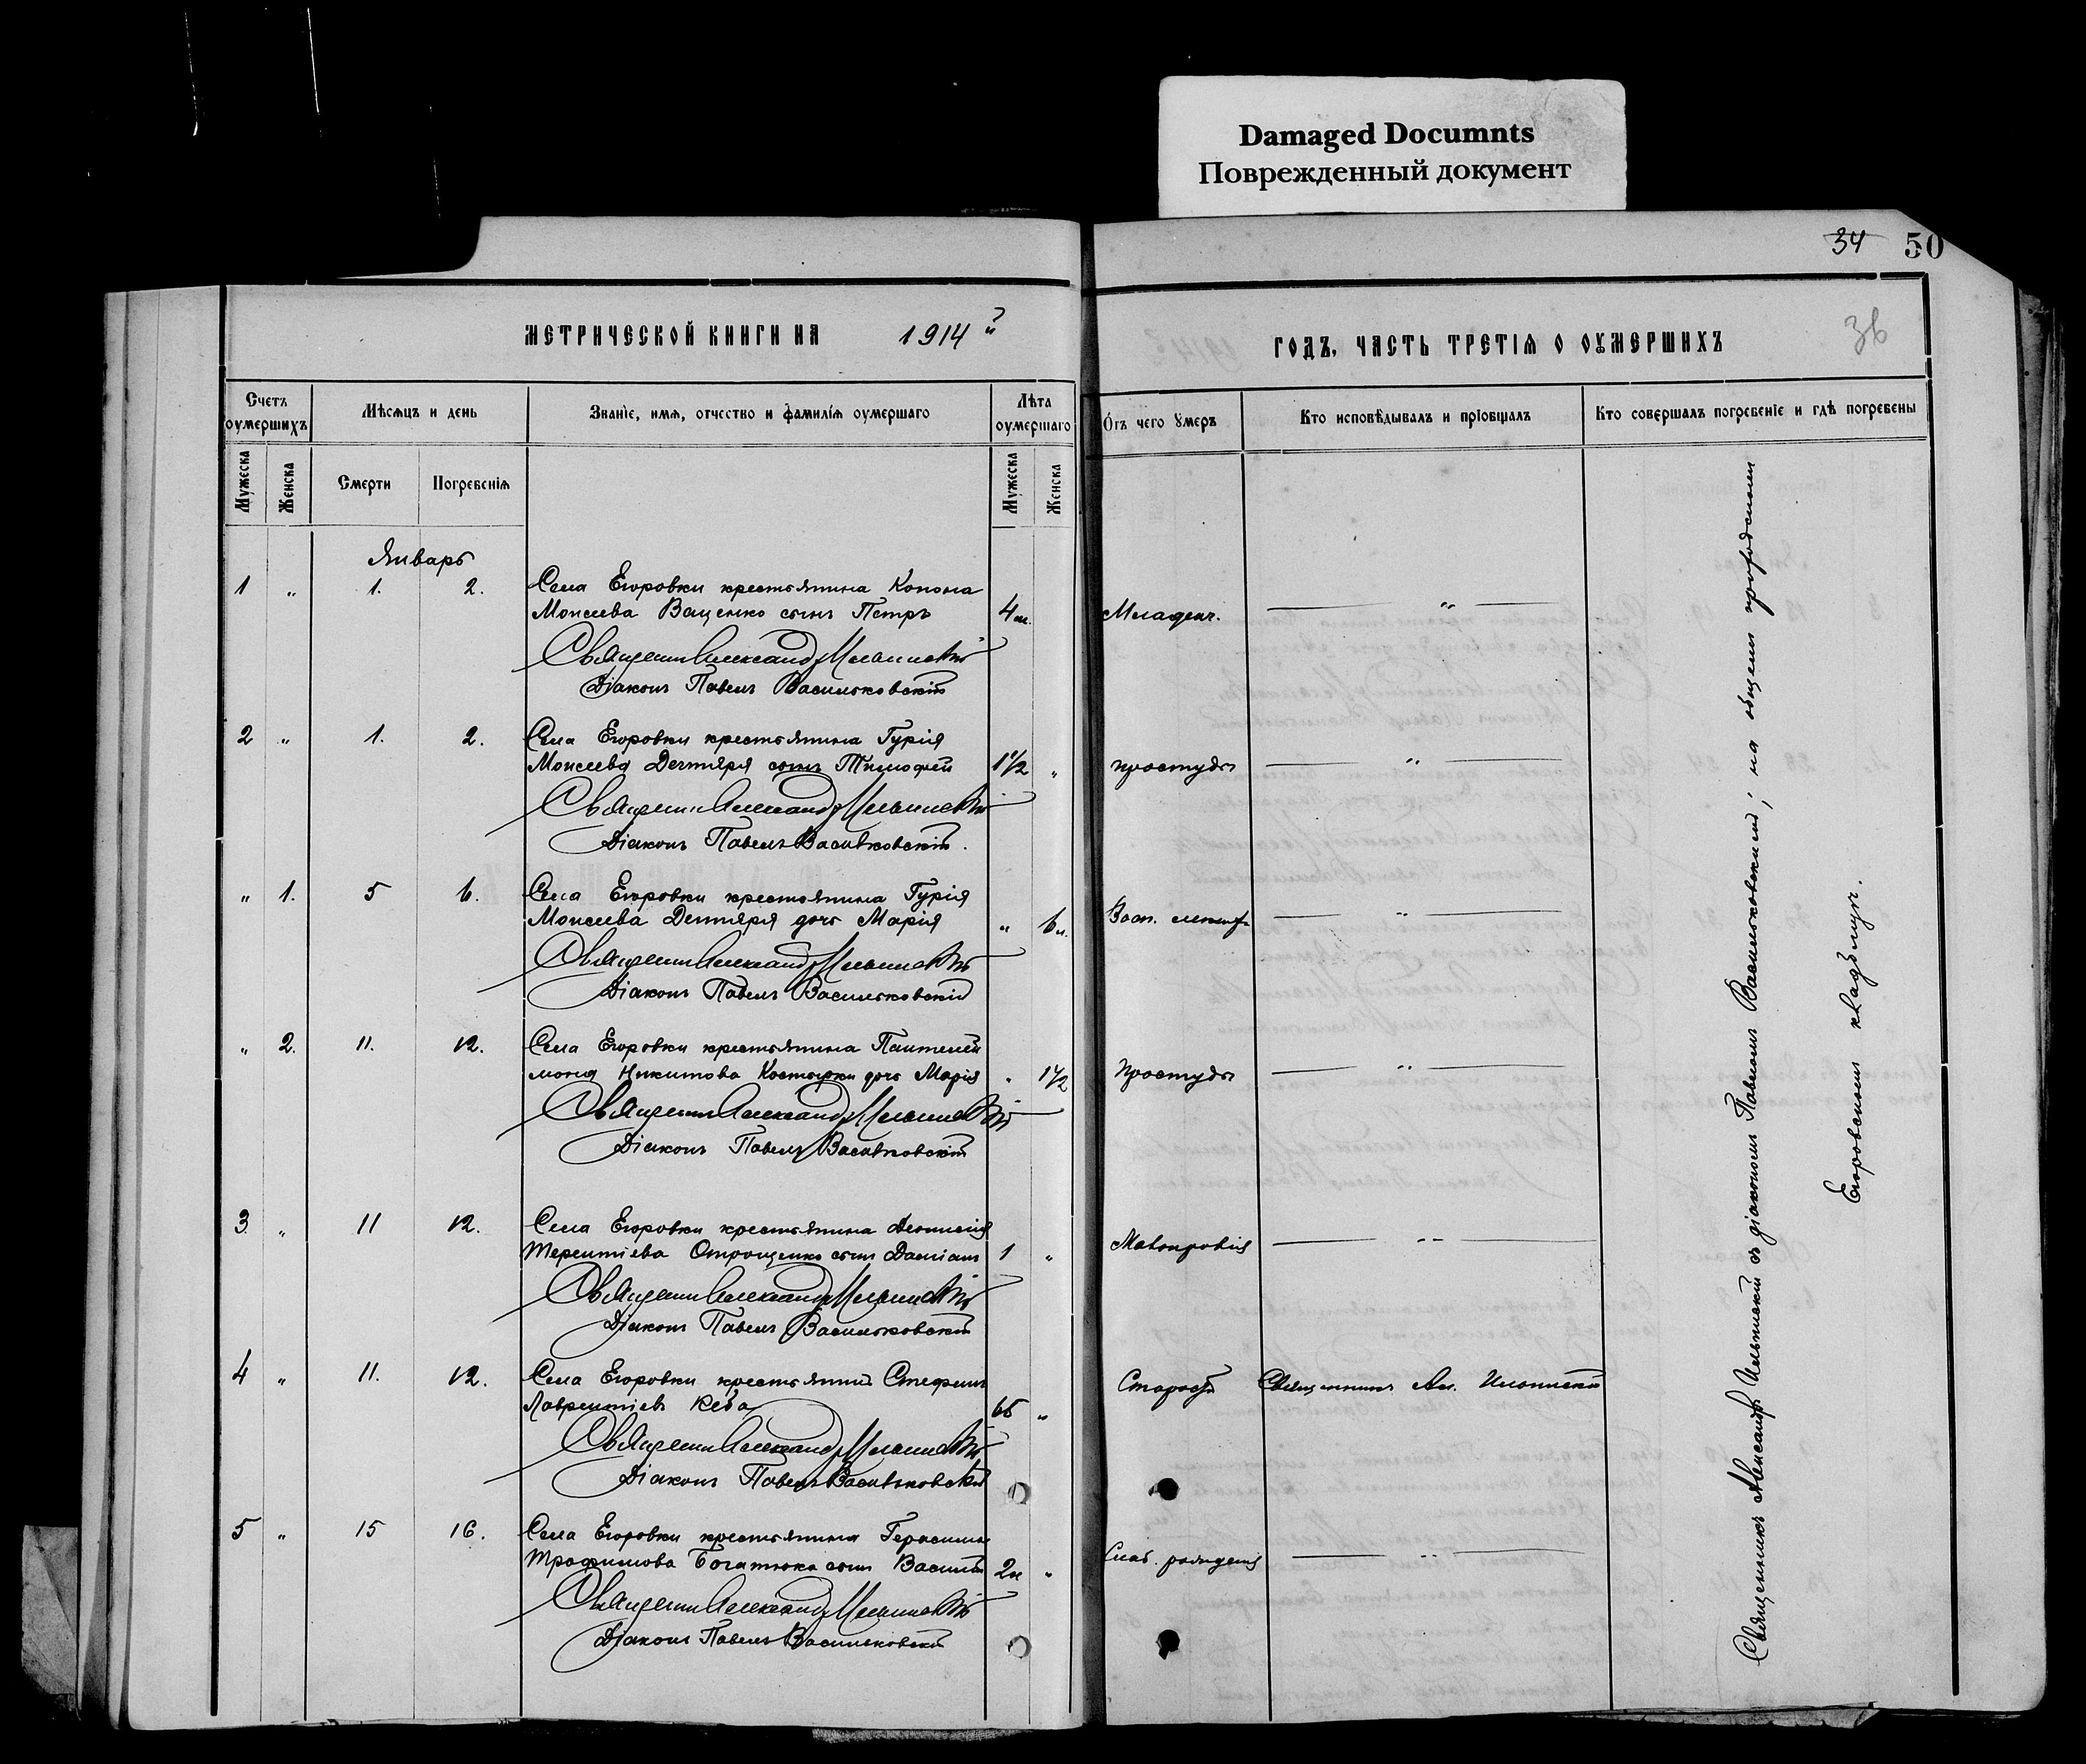 Damaged Documnts
Поврежденный документ
34 50
36
МЕТРИЧЕСКОЙ КНИГИ НА 1914 й
ГОДЪ, ЧАСТЬ ТРЕТІѦ О ОУМЕРШИХЪ
Счетъ оумершихъ
Мѣсѧцъ и день
Званіе, имѧ, отчество и фамиліѧ оумершаго
Лѣта оумершаго
Отъ чего умеръ
Кто исповѣдывалъ и пріобщалъ
Кто совершалъ погребеніе и гдѣ погребены
Мужеска
Женска
Смерти
Погребеніѧ
Мужеска
Женска
Январь
1 " 1. 2. Села Егоровки крестьянина Конона
Моисеева Ващенко сынъ Петръ 4 м. Младенч. "
Священникъ Александръ Ильинскій
Діаконъ Павелъ Васильковскій
2 " 1. 2. Села Егоровки крестьянина Гурія
Моисеева Дегтяря сынъ Тимофей 1 1/2 " простуды "
Священникъ Александръ Ильинскій
Діаконъ Павелъ Васильковскій.
" 1. 5 6. Села Егоровки крестьянина Гурія
Моисеева Дегтяря дочь Марія " 6 м. Восп. легкихъ "
Священникъ Александръ Ильинскій
Діаконъ Павелъ Васильковскій
" 2. 11. 12. Села Егоровки крестьянина Пантелей
мона Никитова дочь Марія " 1 1/2 простуды "
Священникъ Александръ Ильинскій
Діаконъ Павелъ Васильковскій
3 " 11 12. Села Егоровки крестьянина Деонисія
Терентіева Отрощенко сынъ Даміанъ 1 " Малокровія "
Священникъ Александръ Ильинскій
Діаконъ Павелъ Васильковскій
4 " 11. 12. Села Егоровки крестьянинъ Стефанъ
Лаврентіевъ Кеба 65 " Старости Священникъ Ал. Ильинскій
Священникъ Александръ Ильинскій
Діаконъ Павелъ Васильковскій
5 " 15 16. Села Егоровки крестьянина Герасима
Трофимова Богатюка сынъ Василій 2 н " Слаб. рожденія "
Священникъ Александръ Ильинскій
Діаконъ Павелъ Васильковскій
Священникъ Александръ Ильинскій съ діакономъ Павеломъ Васильковскимъ; на общемъ приходскомъ
Егоровскомъ кладбищѣ.